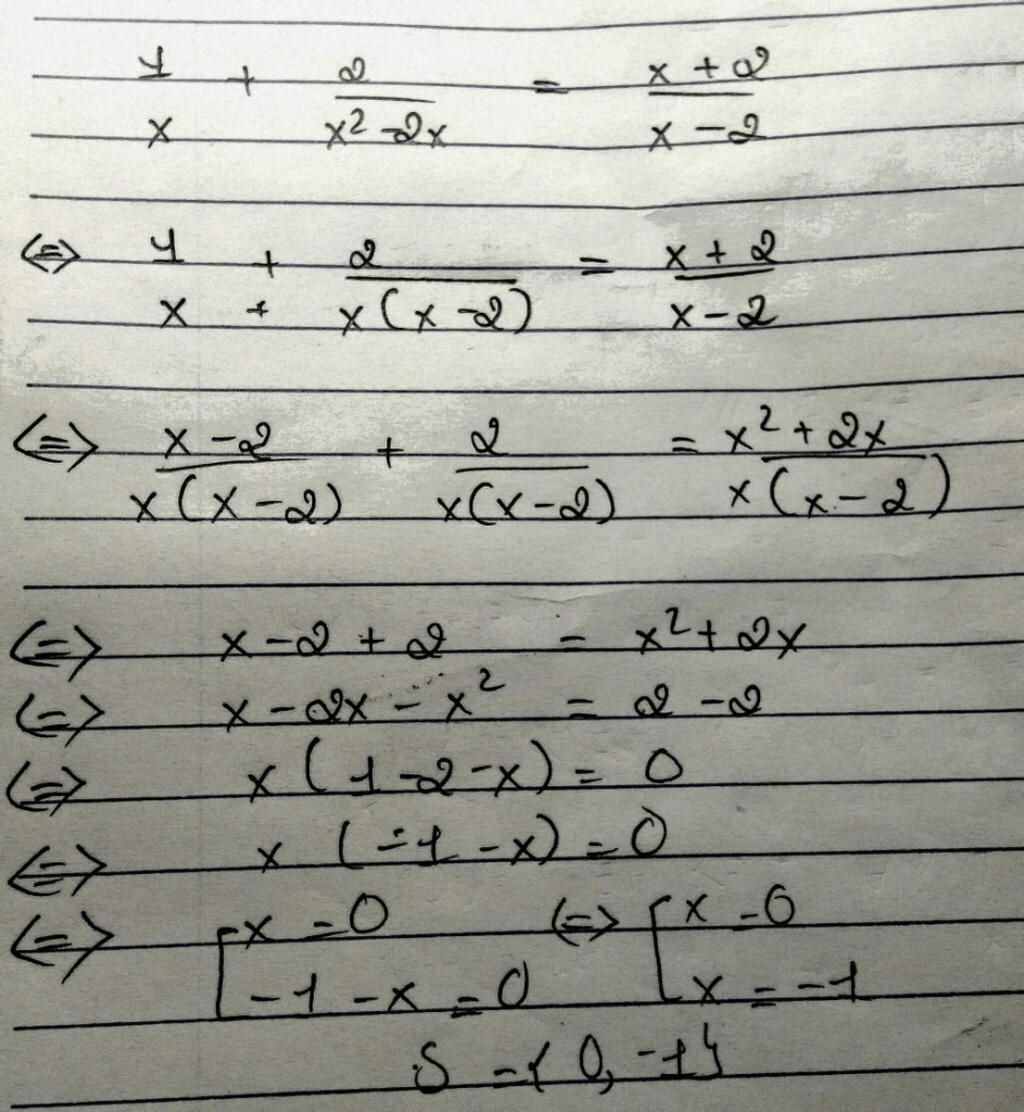 1/x + 2/(x² - 2x) = (x + 2)/(x - 2)
<=> 1/x + 2/(x(x - 2)) = (x + 2)/(x - 2)
<=> (x - 2)/(x(x - 2)) + 2/(x(x - 2)) = (x² + 2x)/(x(x - 2))
<=> x - 2 + 2 = x² + 2x
<=> x - 2x - x² = 2 - 2
<=> x(1 - 2 - x) = 0
<=> x(-1 - x) = 0
<=> [x = 0 <=> [x = 0
-1 - x = 0 x = -1
S = {0, -1}